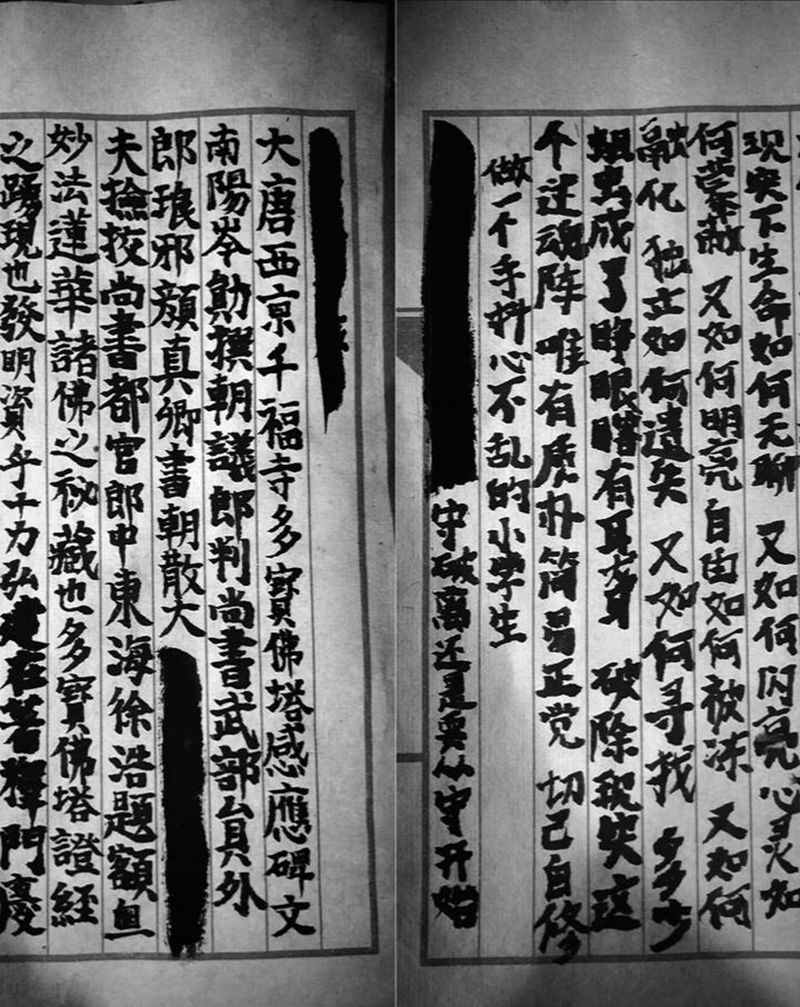 现实下生命如何无聊 又如何闪亮 心灵如
何蒙蔽 又如何明亮 自由如何被冻 又如何
融化 独立如何遗失 又如何寻找 多少
蛆虫成了睁眼瞎有耳聋 破除现实这
个迷魂阵 唯有质朴简易正觉 切己自修
做一个手抖心不乱的小学生
守破离还是要从守开始
大唐西京千福寺多寶佛塔感應碑文
南陽岑勛撰朝議郎判尚書武部員外
郎琅邪顏真卿書朝散大
夫撿挍尚書都官郎中東海徐浩題額
妙法蓮華諸佛之祕藏也多寶佛塔證經
之踴現也發明資乎十力弘建在菩釋門慶